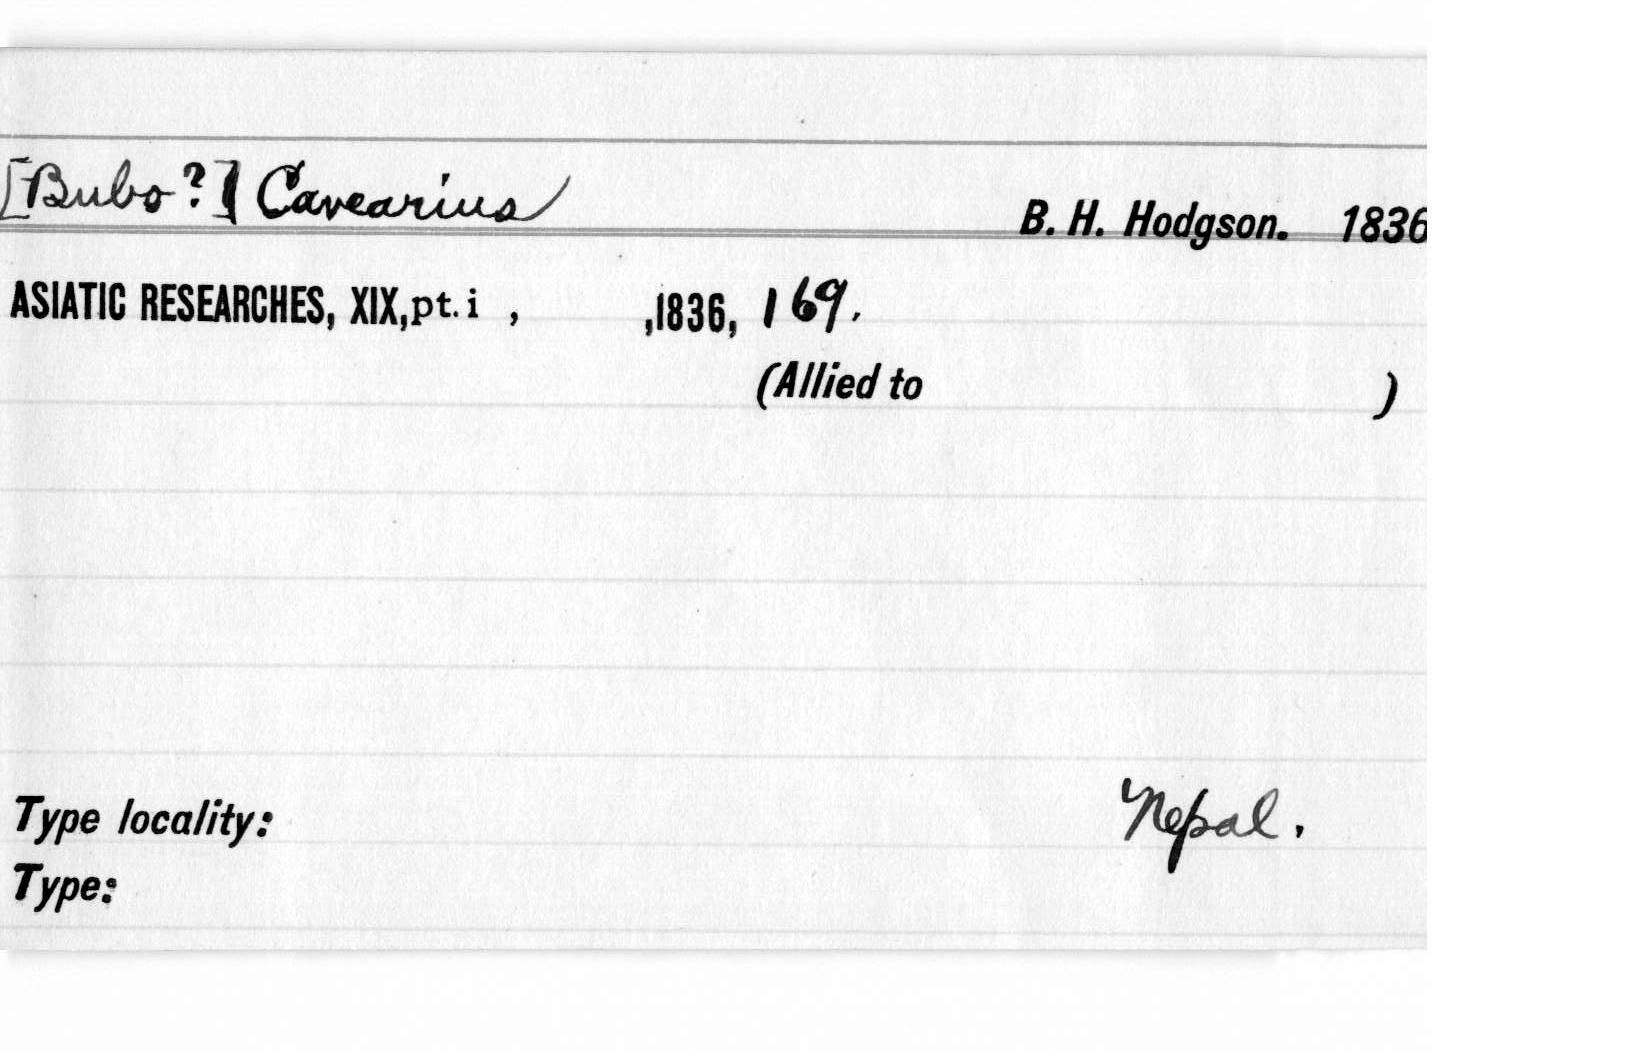 [Bubo?] Cavearius
B. H. Hodgson. 1836
ASIATIC RESEARCHES, XIX, pt. i , ,1836, 169.
(Allied to )
Type locality: Nepal.
Type: